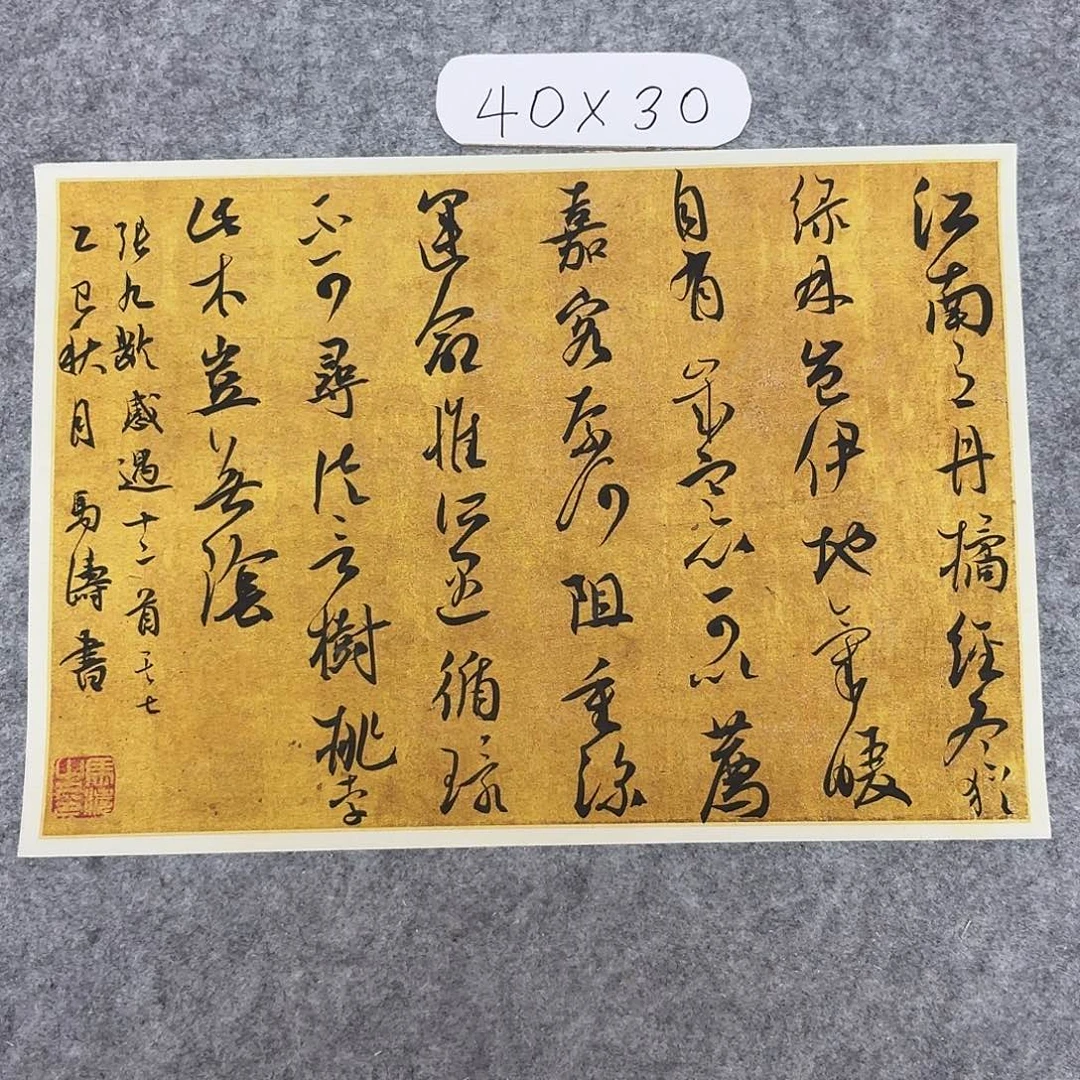 40X30
江南之丹橘經冬猶
綠林豈伊地氣暖
自有歲寒心可以薦
嘉客奈何阻重深
運命惟所遇循環
不可尋徒言樹桃李
此木豈無陰
張九齡感遇十二首其七
乙巳秋月 馬濤書